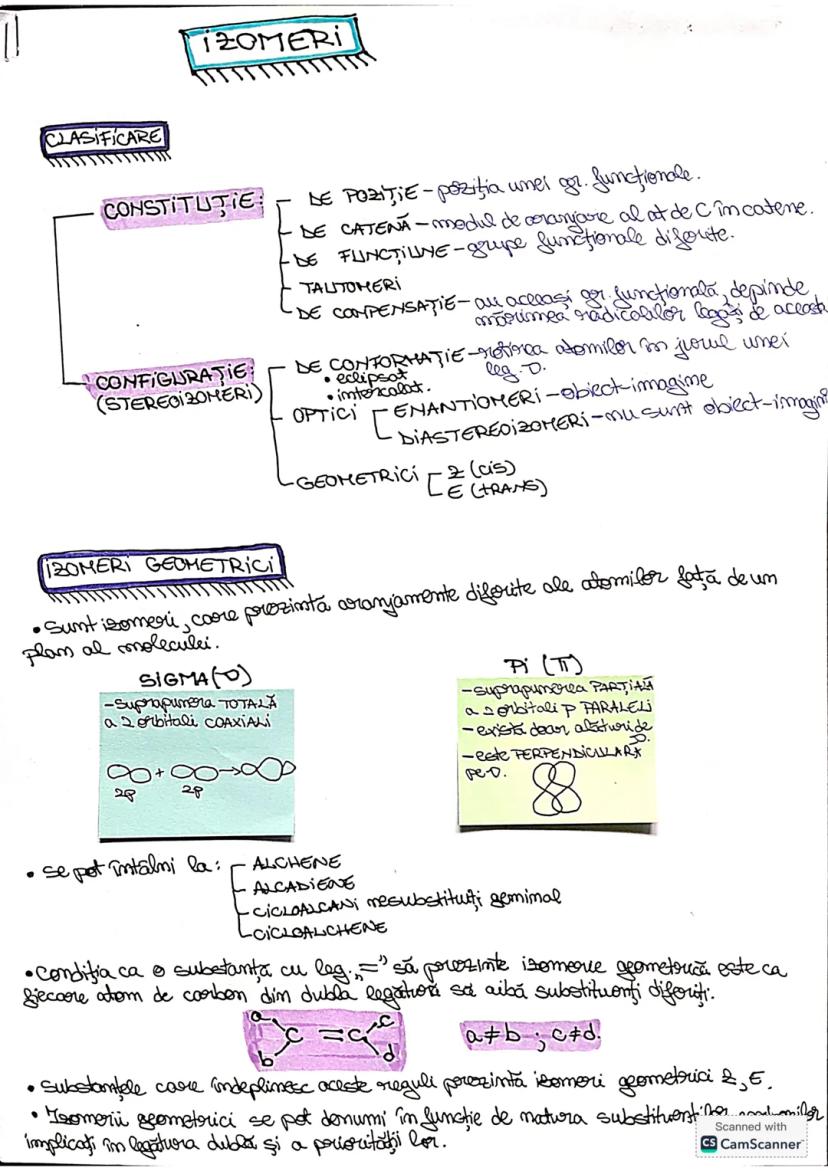 IZOMERI
CLASIFICARE
CONSTITUȚIE:
DE POZIȚIE – poziția unei gr. funcționale.
DE CATENĂ – modul de aranjare al at de C în catene.
DE FUNCȚIUNE – grupe funcționale diferite.
TAUTOMERI
DE COMPENSAȚIE – au aceeași gr. funcțională, depinde
mărimea radicalilor legați de aceasta
CONFIGURAȚIE:
(STEREOIZOMERI)
DE CONFORMAȚIE – rotirea atomilor în jurul unei
leg. σ.
• eclipsat
• intercalat.
OPTICI
ENANTIOMERI – obiect-imagine
DIASTEREOIZOMERI – nu sunt obiect-imagine
GEOMETRICI
Z (cis)
E (TRANS)
IZOMERI GEOMETRICI
• Sunt izomeri, care prezintă aranjamente diferite ale atomilor față de un
plan al moleculei.
SIGMA (σ)
– suprapunerea TOTALĂ
a 2 orbitali COAXIALI
+ →
2p 2p
Pi (π)
– suprapunerea PARȚIALĂ
a 2 orbitali p PARALELI
– există doar alături de
σ.
– este PERPENDICULARĂ
pe σ.
• se pot întâlni la:
ALCHENE
ALCADIENE
CICLOALCANI nesubstituiți geminal
CICLOALCHENE
• Condiția ca o substanță cu leg. „=” să prezinte izomerie geometrică este ca
fiecare atom de carbon din dubla legătură să aibă substituenți diferiți.
a c
C = C
b d
a≠b ; c≠d.
• Substanțele care îndeplinesc aceste reguli prezintă izomeri geometrici Z, E.
• Izomerii geometrici se pot denumi în funcție de natura substituenților
implicați în legătura dublă și a priorității lor.
Scanned with
CS CamScanner